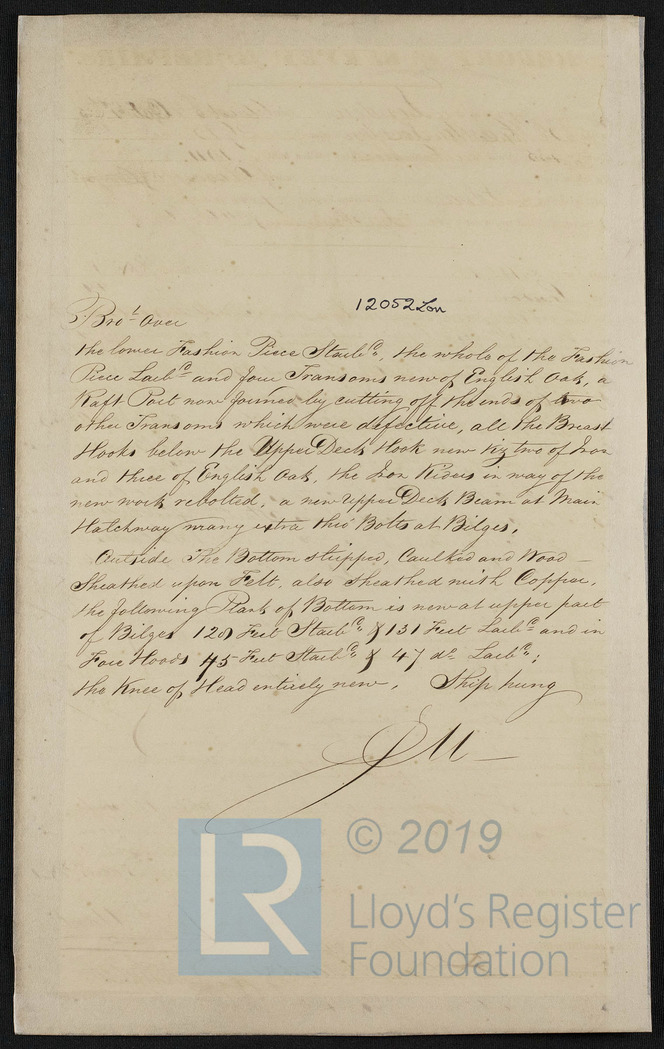 12052 Lon
Bro^t over
the lower Fashion Piece Starb^d, the whole of the Fashion
Piece Larb^d and four Transoms new of English Oak, a
Raft Port now formed by cutting off the ends of two
other Transoms which were defective, all the Breast
Hooks below the Upper Deck Hook new viz two of Iron
and three of English Oak, the Iron Riders in way of the
new work rebolted, a new upper Deck Beam at Main
Hatchway many extra thro' Bolts at Bilges,
Outside The Bottom stripped, Caulked and Wood -
Sheathed upon Felt, also sheathed with Copper,
the following Plank of Bottom is new at upper part
of Bilges 120 Feet Starb^d & 131 Feet Larb^d and in
Fore Hoods 45 Feet Starb^d & 47 d^o Larb^d;
the Knee of Head entirely new, Ship hung
LR
© 2019
Lloyd's Register
Foundation